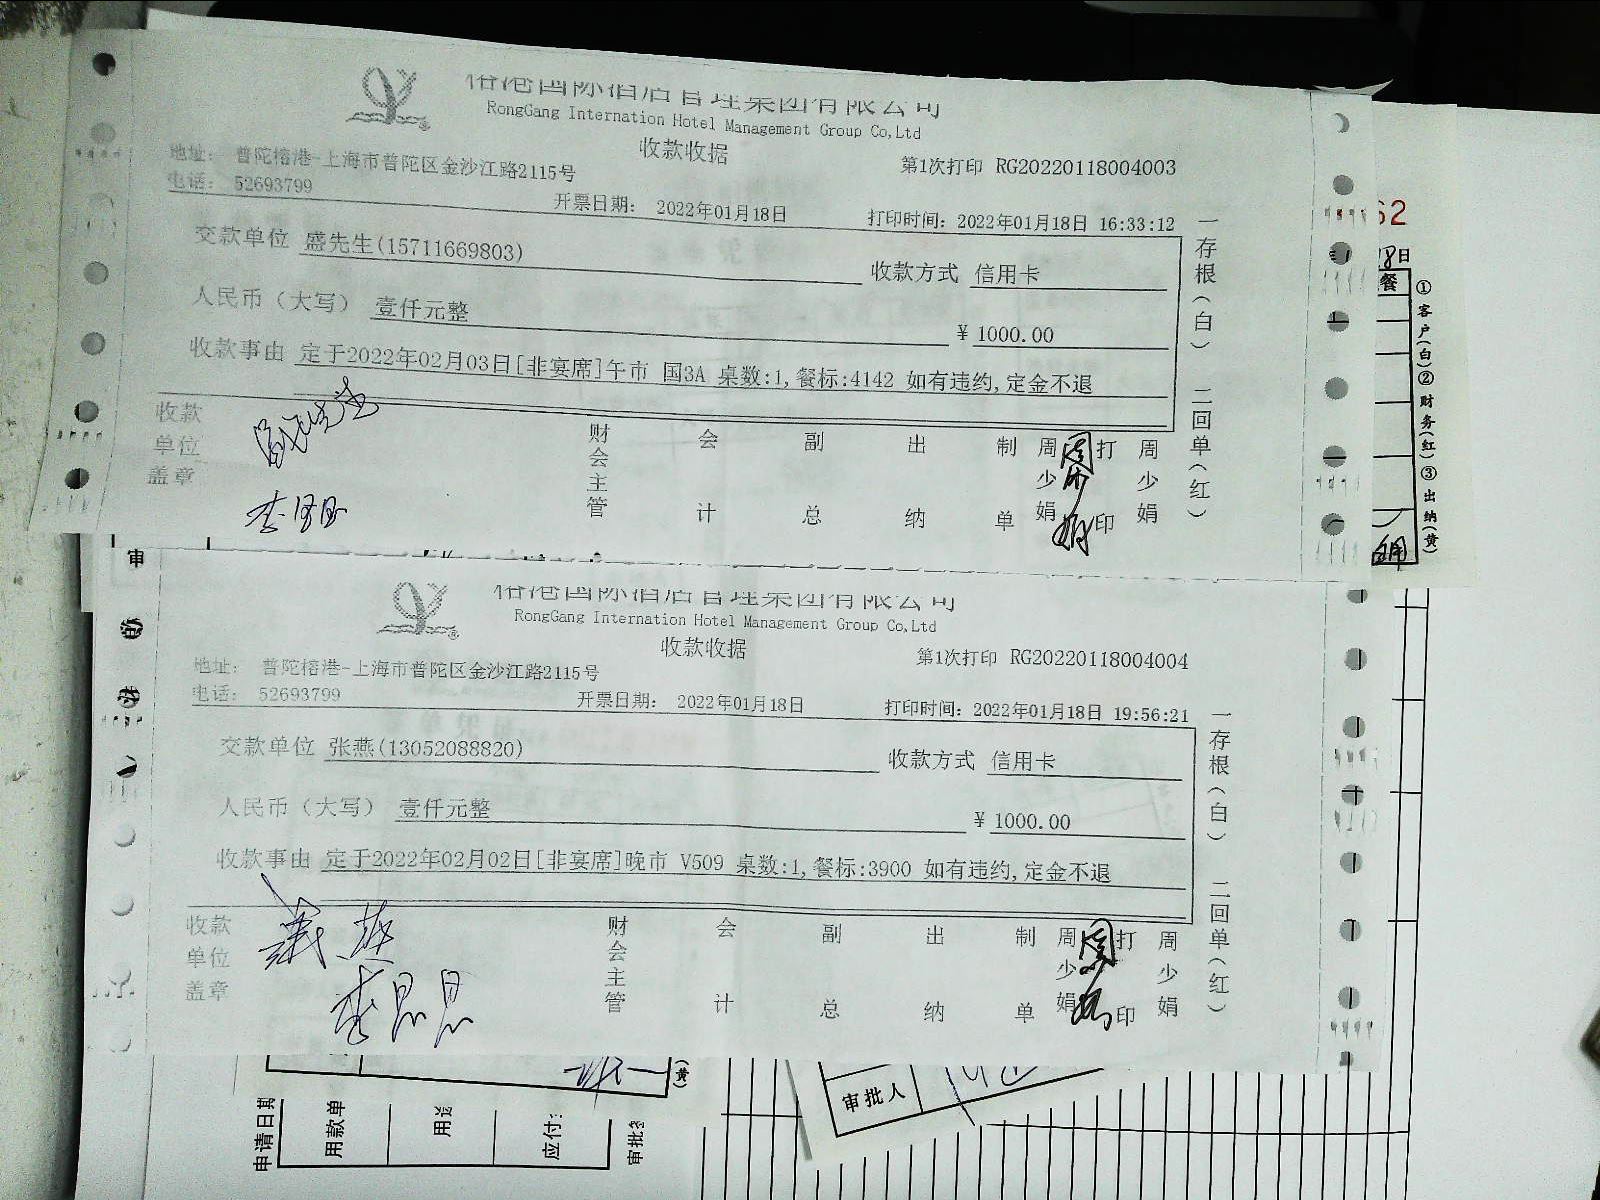 榕港国际酒店管理集团有限公司
RongGang Internation Hotel Management Group Co,Ltd
收款收据
地址: 普陀榕港-上海市普陀区金沙江路2115号
第1次打印 RG20220118004003
电话: 52693799
开票日期: 2022年01月18日
打印时间: 2022年01月18日 16:33:12
交款单位 盛先生(15711669803)
收款方式 信用卡
人民币(大写) 壹仟元整
¥ 1000.00
收款事由 定于2022年02月03日[非宴席]午市 国3A 桌数:1,餐标:4142 如有违约,定金不退
收款单位盖章
财会主管 会计 副总 出纳 制单 周少娟 打印 周少娟
一存根(白) 二回单(红)
62
8日
餐
①客户(白)②财务(红)③出纳(黄)
审
榕港国际酒店管理集团有限公司
RongGang Internation Hotel Management Group Co,Ltd
收款收据
地址: 普陀榕港-上海市普陀区金沙江路2115号
第1次打印 RG20220118004004
电话: 52693799
开票日期: 2022年01月18日
打印时间: 2022年01月18日 19:56:21
交款单位 张燕(13052088820)
收款方式 信用卡
人民币(大写) 壹仟元整
¥ 1000.00
收款事由 定于2022年02月02日[非宴席]晚市 V509 桌数:1,餐标:3900 如有违约,定金不退
收款单位盖章
财会主管 会计 副总 出纳 制单 周少娟 打印 周少娟
一存根(白) 二回单(红)
(黄)
审批人
申请日期
用款单
应付: